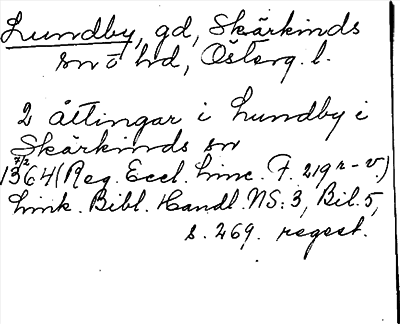 Lundby, gd, Skärkinds
sn o hd, Österg. l.
2 åttingar i Lundby i
Skärkinds sn
7/2
1364 (Reg. Eccl. Linc. F. 219 r-v.)
Link. Bibl. Handl. NS: 3, Bil. 5,
s. 269. regest.